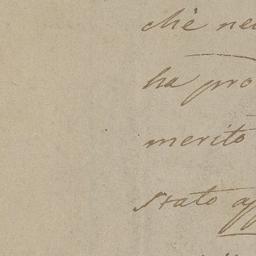 chè ne
ha pro
merito
stato ap